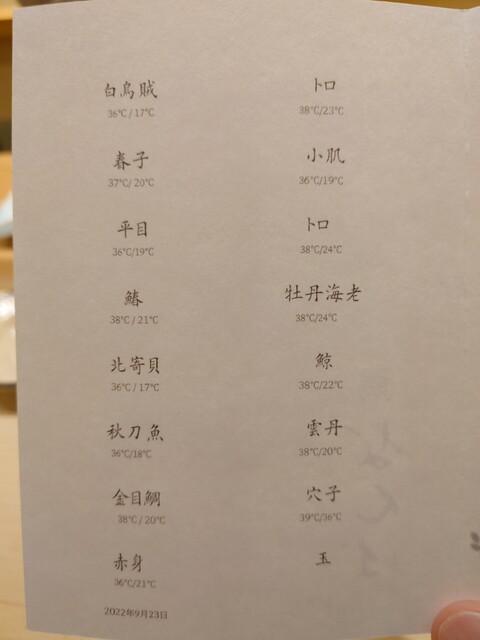 白烏賊
36℃ / 17℃
春子
37℃/ 20℃
平目
36℃/19℃
鰆
38℃ / 21℃
北寄貝
36℃ / 17℃
秋刀魚
36℃/18℃
金目鯛
38℃ / 20℃
赤身
36℃/21℃
2022年9月23日
トロ
38℃/23℃
小肌
36℃/19℃
トロ
38℃/24℃
牡丹海老
38℃/24℃
鯨
38℃/22℃
雲丹
38℃/20℃
穴子
39℃/36℃
玉